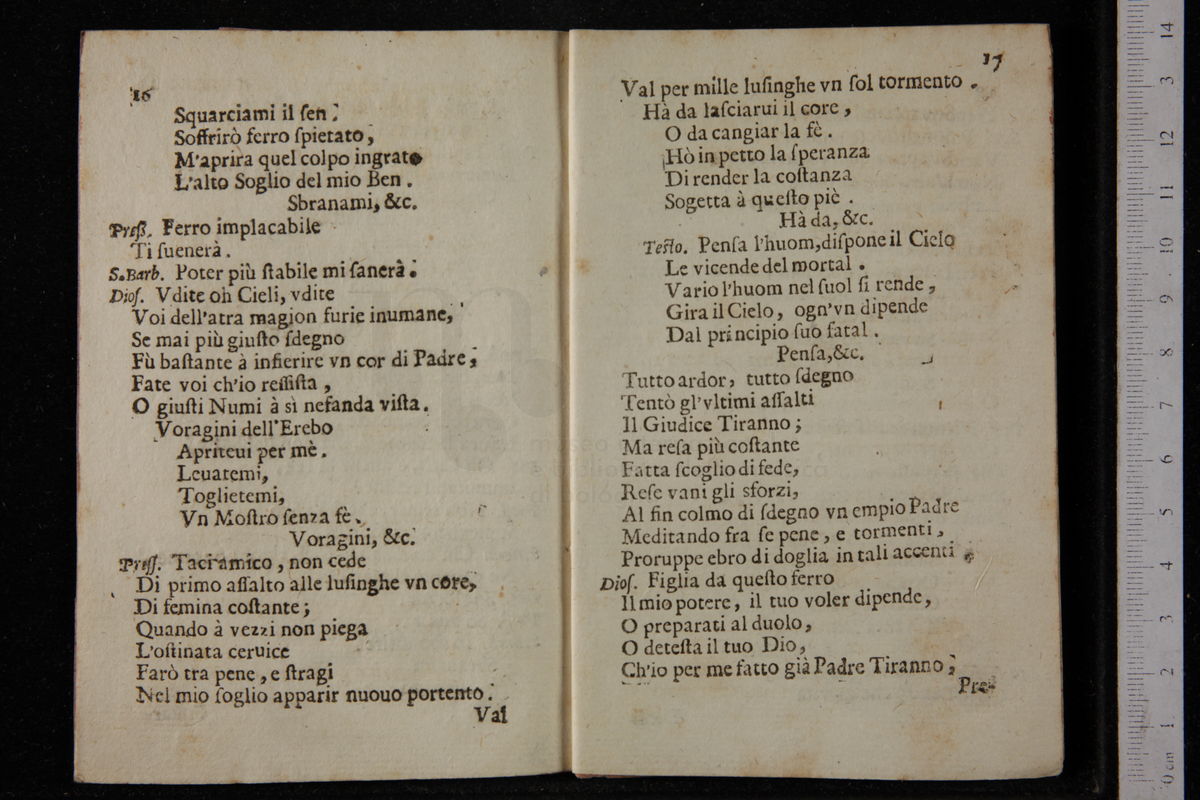 16
Squarciami il ſen.
Soffrirò ferro ſpietato,
M'aprira quel colpo ingrato
L'alto Soglio del mio Ben.
Sbranami, &c.
Preſſ. Ferro implacabile
Ti ſuenerà.
S. Barb. Poter più ſtabile mi ſanerà.
Dioſ. Vdite oh Cieli, vdite
Voi dell'atra magion furie inumane,
Se mai più giuſto ſdegno
Fù baſtante à infierire vn cor di Padre,
Fate voi ch'io reſſiſta,
O giuſti Numi à sì nefanda viſta.
Voragini dell'Erebo
Apriteui per mè.
Leuatemi,
Toglietemi,
Vn Moſtro ſenza fè.
Voragini, &c.
Preſſ. Taci amico, non cede
Di primo aſſalto alle luſinghe vn core,
Di femina coſtante;
Quando à vezzi non piega
L'oſtinata ceruice
Farò tra pene, e ſtragi
Nel mio ſoglio apparir nuouo portento.
Val
17
Val per mille luſinghe vn ſol tormento.
Hà da laſciarui il core,
O da cangiar la fè.
Hò in petto la ſperanza
Di render la coſtanza
Sogetta à queſto piè.
Hà da, &c.
Teſto. Penſa l'huom, diſpone il Cielo
Le vicende del mortal.
Vario l'huom nel ſuol ſi rende,
Gira il Cielo, ogn'vn dipende
Dal principio ſuo fatal.
Penſa, &c.
Tutto ardor, tutto ſdegno
Tentò gl'vltimi aſſalti
Il Giudice Tiranno;
Ma reſa più coſtante
Fatta ſcoglio di fede,
Reſe vani gli sforzi,
Al fin colmo di ſdegno vn empio Padre
Meditando fra ſe pene, e tormenti,
Proruppe ebro di doglia in tali accenti
Dioſ. Figlia da queſto ferro
Il mio potere, il tuo voler dipende,
O preparati al duolo,
O deteſta il tuo Dio,
Ch'io per me fatto già Padre Tiranno;
Pre-